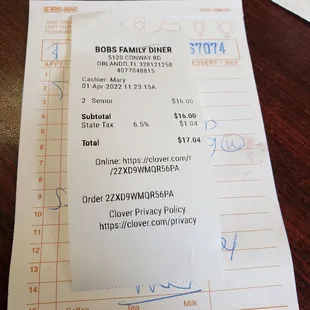 67074
BOBS FAMILY DINER
5120 CONWAY RD
ORLANDO, FL 328121258
4077048815
Cashier: Mary
01-Apr-2022 11:23:15A
2 Senior $16.00
Subtotal $16.00
State Tax 6.5% $1.04
Total $17.04
Online: https://clover.com/r
/2ZXD9WMQR56PA
Order 2ZXD9WMQR56PA
Clover Privacy Policy
https://clover.com/privacy
1
2
3
4
5
6
7
8
9
10
11
12
13
14
15
Tea Milk